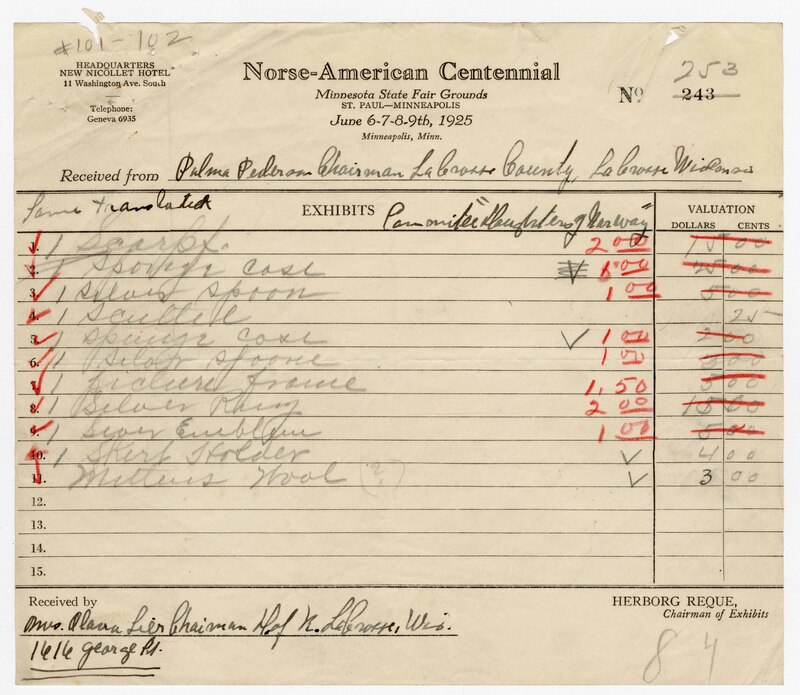 *101-102
HEADQUARTERS
NEW NICOLLET HOTEL
11 Washington Ave. South
Telephone:
Geneva 6935
Norse-American Centennial
Minnesota State Fair Grounds
ST. PAUL—MINNEAPOLIS
June 6-7-8-9th, 1925
Minneapolis, Minn.
253
No 243
Received from Palma Pederson Chairman LaCrosse County, LaCrosse Wisconsin
Some translated EXHIBITS Committee "Daughters of Norway" VALUATION
DOLLARS CENTS
1. 1 Scarf 2 00 15 00
2. 1 Sponge case 1 00 25 00
3. 1 Silver spoon 1 00 5 00
4. 1 25
5. 1 Sponge case 1 00 2 00
6. 1 Silver spoone 1 00 5 00
7. 1 picture frame 1.50 5 00
8. 1 Silver 2 00 15 00
9. 1 Emblem 1 00 5 00
10. 1 Skirt Holder 4 00
11. Mittens Wool (2) 3 00
12.
13.
14.
15.
Received by
Mrs. Chairman D of N. LaCrosse, Wis.
1616 George St.
HERBORG REQUE,
Chairman of Exhibits
84